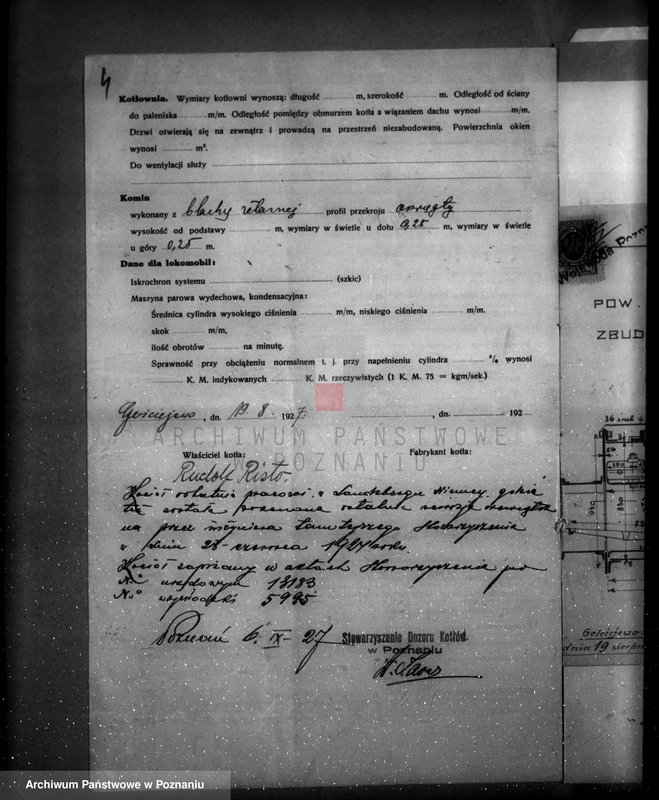 4
Kotłownia. Wymiary kotłowni wynoszą: długość m, szerokość m. Odległość od ściany
do paleniska m/m. Odległość pomiędzy obmurzem kotła a wiązaniem dachu wynosi m/m.
Drzwi otwierają się na zewnątrz i prowadzą na przestrzeń niezabudowaną. Powierzchnia okien
wynosi m².
Do wentylacji służy
Komin
wykonany z blachy żelaznej profil przekroju okrągły
wysokość od podstawy m, wymiary w świetle u dołu 0,25 m, wymiary w świetle
u góry 0,25 m.
Dane dla lokomobil:
Iskrochron systemu (szkic)
Maszyna parowa wydechowa, kondensacyjna:
Średnica cylindra wysokiego ciśnienia m/m, niskiego ciśnienia m/m.
skok m/m,
ilość obrotów na minutę.
Sprawność przy obciążeniu normalnem t. j. przy napełnieniu cylindra % wynosi
K. M. indykowanych K. M. rzeczywistych (1 K. M. 75 = kgm/sek.)
Gościejewo, dn. 19 8. 1927. , dn. 192
ARCHIWUM PAŃSTWOWE
W POZNANIU
Właściciel kotła: Fabrykant kotła:
Rudolf Risto.
Kocioł ostatnio pracował w Landsbergu Niemcy gdzie
też została dokonana ostatnia rewizja
na przez inżyniera tamtejszego Stowarzyszenia
w dniu 25 czerwca 1924 roku.
Kocioł zapisany w aktach Stowarzyszenia pod
No urzędowym 13183
No 5995
Poznań 6. IX - 27 Stowarzyszenie Dozoru Kotłów
w Poznaniu
POW.
ZBUD
Gościejewo
dnia 19 sierp
Archiwum Państwowe w Poznaniu